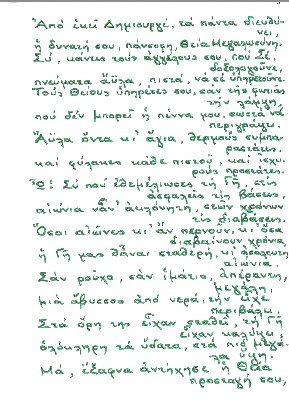 Ἀπό ἐκεῖ Δημιουργέ, τά πάντα διευθύνει,
ἡ δυνατή σου, πάνσοφη, Θεία Μεγαλωσύνη.
Σύ, κάνεις τούς ἀγγέλους σου, πού Σέ δοξολογοῦνε,
πνεύματα ἄϋλα, πιστά, νά σέ ὑπηρετοῦνε.
Τούς Θείους ὑπηρέτες σου, σάν τῆς φωτιᾶς τήν λάμψη,
πού δέν μπορεῖ ἡ πέννα μου, σωστά νά περιγράψῃ.
Ἄϋλα ὄντα κι' ἅγια, θερμούς συμπαραστάτες.
καί φύλακες κάθε πιστοῦ, καί ἰσχυρούς προστάτες.
Ὦ! Σύ πού ἐθεμέλιωσες τή Γῆ, στίς ἀσφαλεῖς τίς βάσεις,
αἰώνια νἆν' ἀκλόνητη, στῶν χρόνων τίς διαβάσεις.
Ὅσοι αἰῶνες κι' ἄν περνοῦν, κι' ὅσα διαβαίνουν χρόνια,
ἡ Γῆ μας θἆναι σταθερή, κι' ἀσάλευτη αἰώνια.
Σάν ροῦχο, σάν ἱμάτιο, ἀπέραντη, μεγάλη,
μιά ἄβυσσος ἀπό νερά, τήν εἶχε περιβάλει.
Στά ὄρη της εἶχαν σταθεῖ, τή Γῆ εἶχαν καλύψει,
ὁλόκληρη τά ὕδατα, στά πιό μεγάλα ὕψη.
Μά, ἔξαφνα ἀντήχησε ἡ Θεία προσταγή σου,